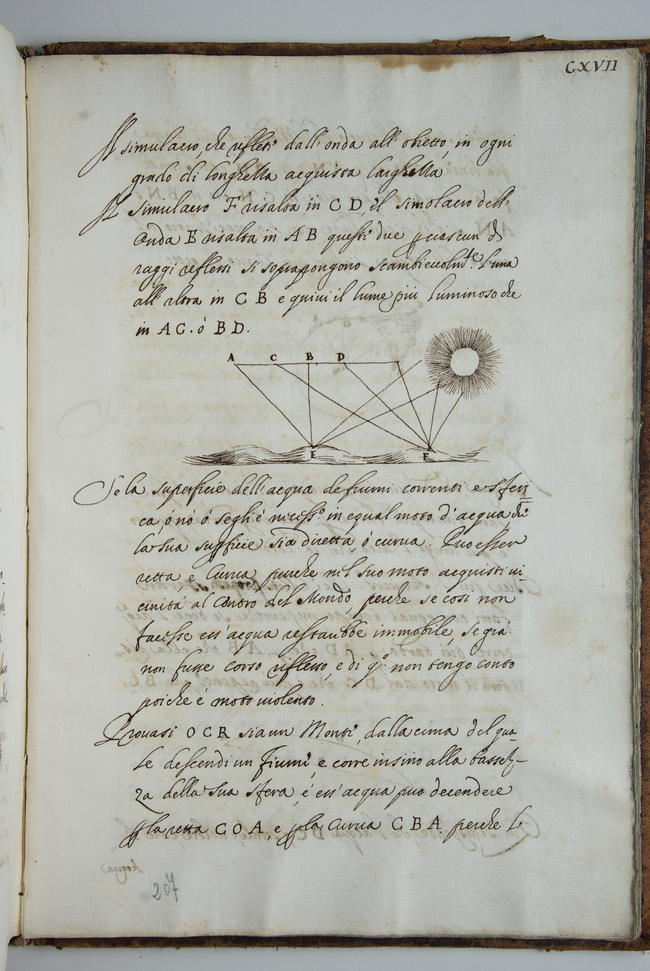 CXVII
Il simulacro, che reflette dall'onda all'obietto, in ogni
grado di longhezza acquista larghezza
Il simulacro F risalta in C D, il simolacro dell'
onda E risalta in A B questi due p ciascun d
raggi reflessi si soprapongono scambievolmte. l'una
all'altra in C B e quivi il lume piu luminoso che
in A C. ó B D.
A C B D
E F
Se la superficie dell'acqua de fiumi correnti e sferi
ca, ó nó ó segli é necesso. in equal moto d'acqua che
la sua supficie sia diretta, ó curva. Può esser
retta, e curva, purche nel suo moto acquisti vi
cinità al Centro del Mondo perche se cosi non
facesse ess'acqua restarebbe immobile, se già
non fusse corso reflesso, e di qo. non tengo conto
poiche é moto violento.
Provasi O C R sia un Monte, dalla cima del qua-
le descendi un fiume, e corre insino alla bassez-
za della sua sfera, é ess'acqua puo decendere
p la retta C O A, e p la Curva C B A perche l
lacqua
207